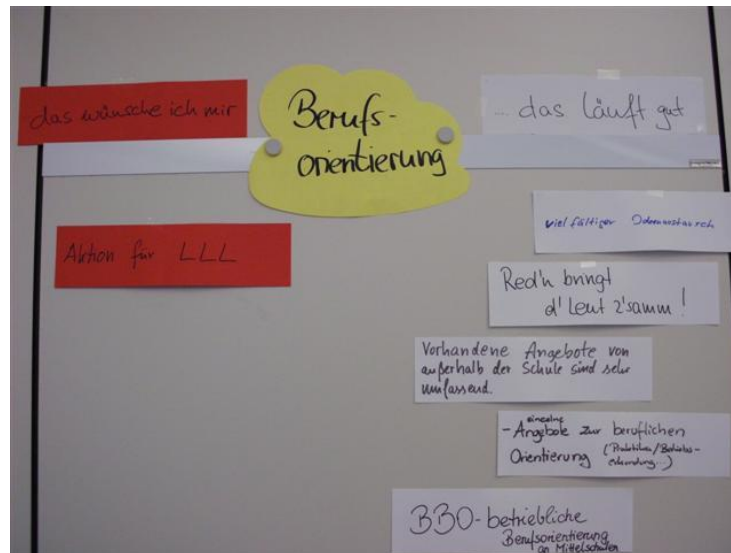 das wünsche ich mir
Berufs-
orientierung
... das läuft gut
Aktion für LLL
vielfältiger Ideenaustausch
Red'n bringt
d'Leut z'samm!
Vorhandene Angebote von
außerhalb der Schule sind sehr
umfassend.
einzelne
- Angebote zur beruflichen
Orientierung (Praktika/Betriebs-
erkundung...)
BBO-betriebliche
Berufsorientierung
an Mittelschulen